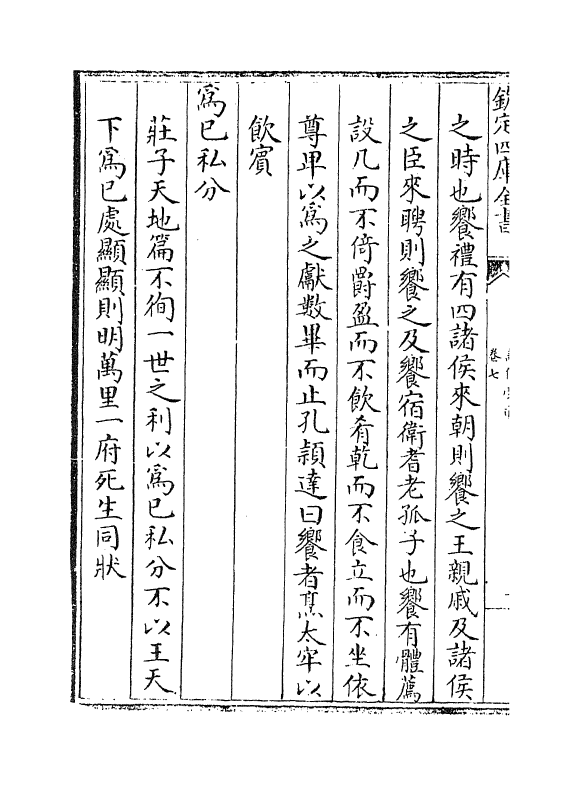 欽定四庫全書
卷七
之時也饗禮有四諸侯來朝則饗之王親戚及諸侯
之臣來聘則饗之及饗宿衛耆老孤子也饗有體薦
設几而不倚爵盈而不飲肴乾而不食立而不坐依
尊卑以為之獻數畢而止孔頴達曰饗者烹太牢以
飲賓
為已私分
莊子天地篇不徇一世之利以為已私分不以王天
下為已處顯顯則明萬里一府死生同狀